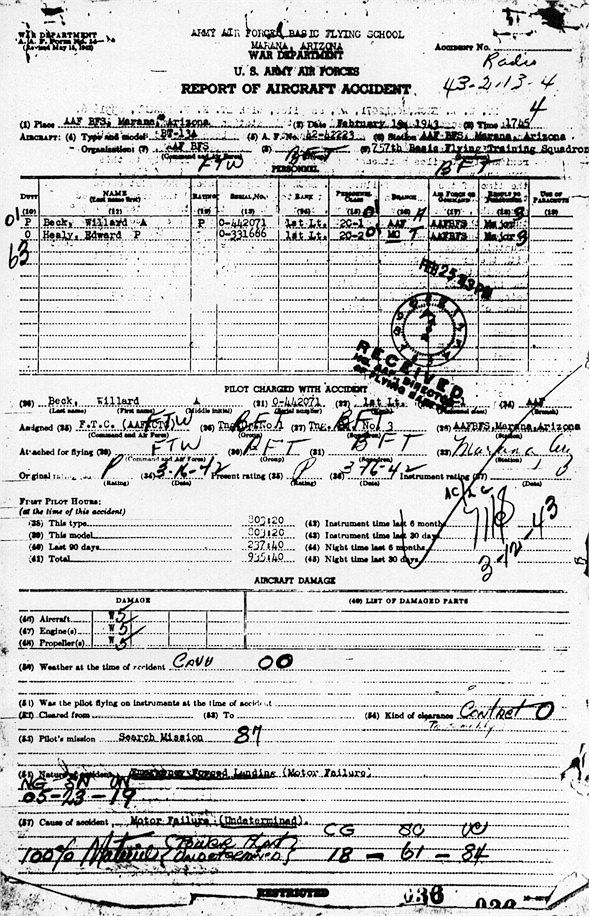 WAR DEPARTMENT
A.A.F. Form No. 14
(Revised May 15, 1942)
ARMY AIR FORCES BASIC FLYING SCHOOL
MARANA, ARIZONA
WAR DEPARTMENT
U. S. ARMY AIR FORCES
REPORT OF AIRCRAFT ACCIDENT
ACCIDENT No.
43-2-13-4
4
(1) Place AAF BFS, Marana, Arizona (2) Date February 1943 (3) Time 1745
AIRCRAFT: (4) Type and model BT-13A (5) A. F. No. 42-42223 (6) Station AAF BFS, Marana, Arizona
Organization: (7) AAF BFS (8) BFT (9) 757th Basic Flying Training Squadron
(Command and Air Force) (Group) (Squadron)
FTW BFT
PERSONNEL
DUTY NAME (Last name first) RATING SERIAL NO. RANK PERSONNEL CLASS BRANCH AIR FORCE OR COMMAND RESULTS TO PERSONNEL USE OF PARACHUTE
(10) (11) (12) (13) (14) (15) (16) (17) (18) (19)
P Beck, Willard A P 0-442071 1st Lt. 20-1 AAF AAFBFS Major
O Healy, Edward P 0-331686 1st Lt. 20-2 MC AAFBFS Major
FEB 25 43 PM
RECEIVED
HQ AAF DIRECTOR
OF FLYING
PILOT CHARGED WITH ACCIDENT
(20) Beck, Willard A (21) 0-442071 (22) 1st Lt. (24) AAF
(Last name) (First name) (Middle initial) (Serial number) (Rank) (Personnel class) (Branch)
Assigned (25) F.T.C. (AAFWCTC) FTW (26) Tng. Gr. No. 1 BFT (27) BFT 3 (28) AAFBFS, Marana, Arizona
(Command and Air Force) (Group) (Squadron) (Station)
Attached for flying (29) FTW (30) BFT (31) BFT (32) Marana
(Command and Air Force) (Group) (Squadron) (Station)
Original rating P (34) 3-16-42 Present rating (35) P 3-16-42 Instrument rating (37)
(Rating) (Date) (Rating) (Date) (Date)
FIRST PILOT HOURS:
(at the time of this accident)
(38) This type 803:20 (42) Instrument time last 6 months
(39) This model 803:20 (43) Instrument time last 30 days
(40) Last 90 days 237:40 (44) Night time last 6 months
(41) Total 935:40 (45) Night time last 30 days
3-12-43
AIRCRAFT DAMAGE
DAMAGE (49) LIST OF DAMAGED PARTS
(46) Aircraft W 5
(47) Engine(s) W 5
(48) Propeller(s) W 5
(50) Weather at the time of accident CAVU 00
(51) Was the pilot flying on instruments at the time of accident
(52) Cleared from (53) To (54) Kind of clearance Contact 0
(55) Pilot's mission Search Mission 87
(56) Nature of accident Forced Landing (Motor Failure)
NG SN UN
05-23-19
(57) Cause of accident Motor Failure (Undetermined).
CG SC UU
100% Materiel {Power Plant Undetermined} 18 - 61 - 84
RESTRICTED
036
036